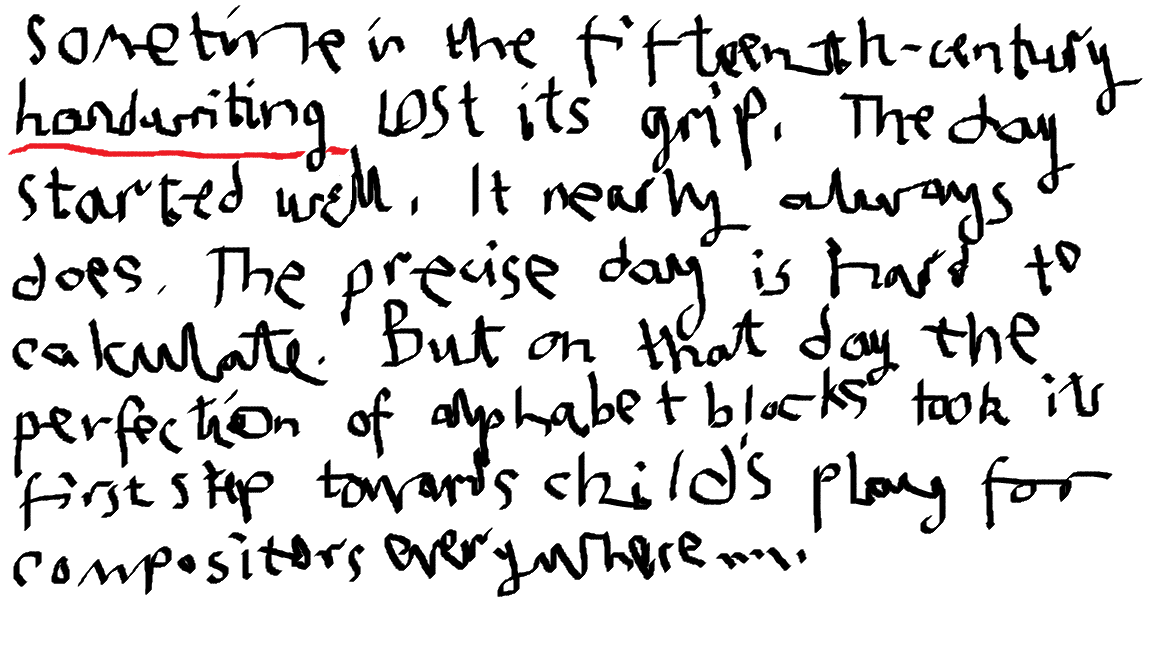 sometime in the fifteenth-century
handwriting lost its grip. The day
started well. It nearly always
does. The precise day is hard to
calculate. But on that day the
perfection of alphabet blocks took its
first step towards child's play for
compositors everywhere.....